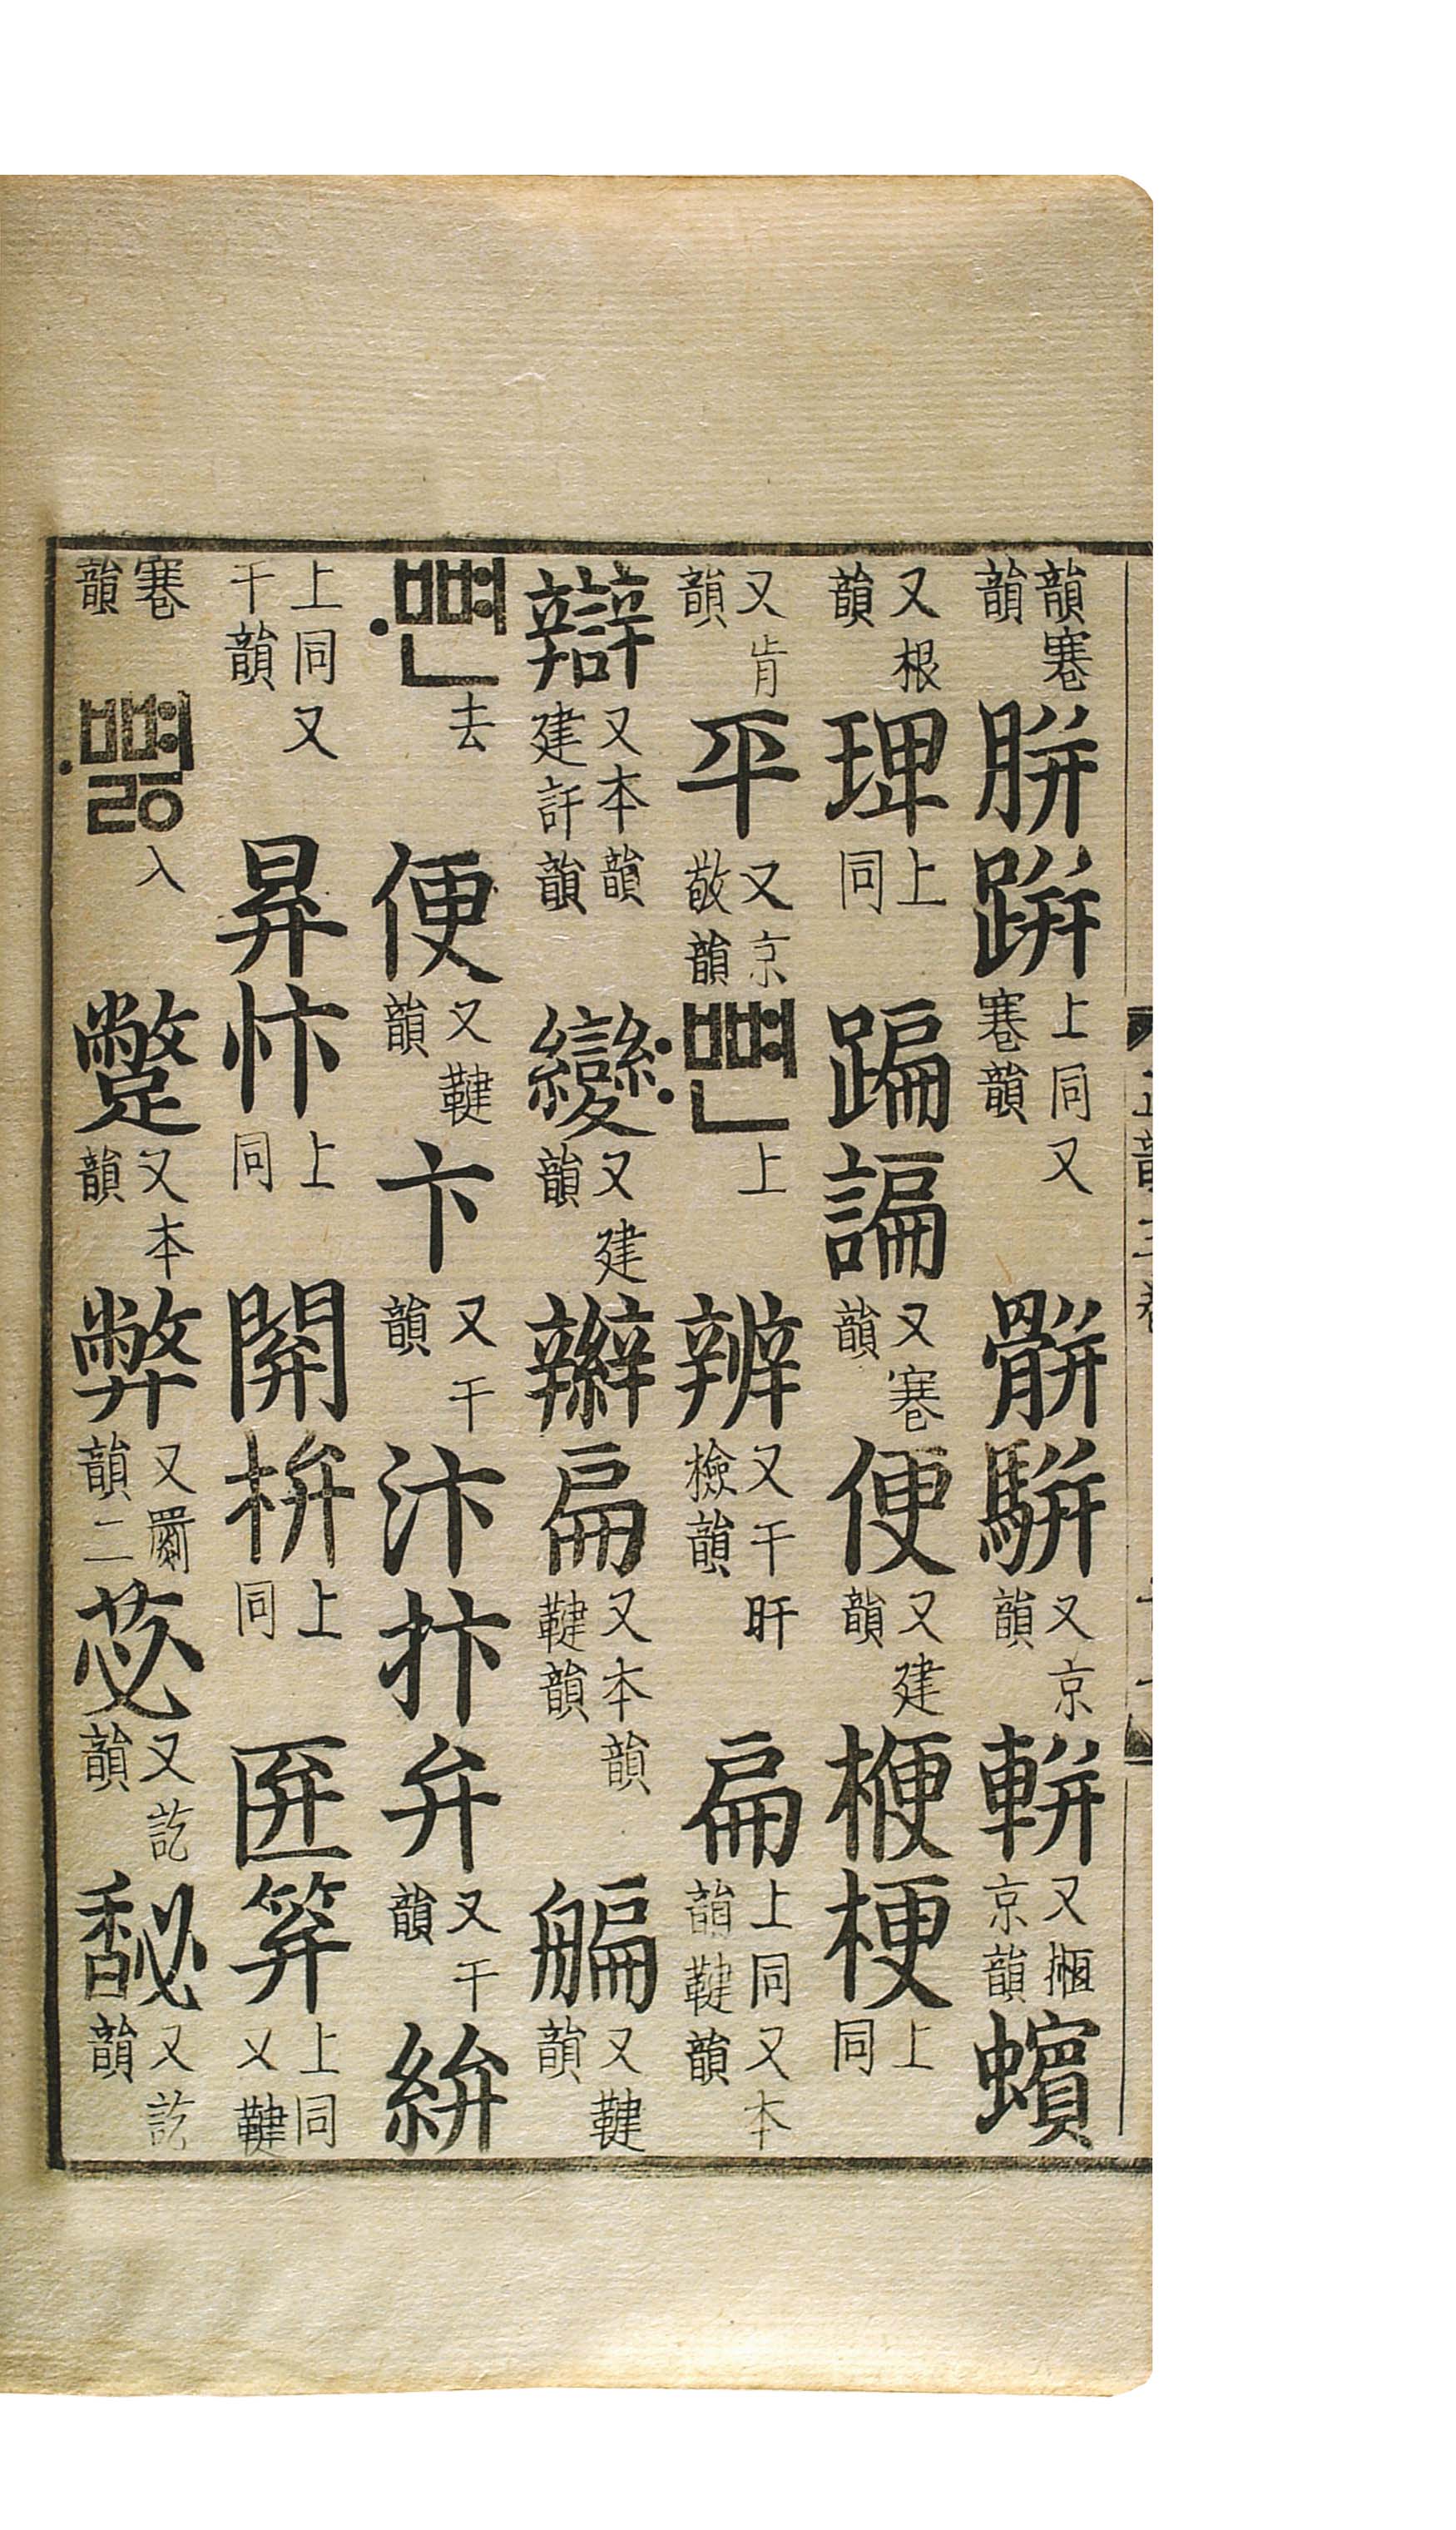 韻韻搴胼跰上同又搴韻骿騈又京韻軿又搄京韻蠙
又根韻琕上同蹁諞又搴韻便又建韻楩梗上同
又肯韻平又京敬韻뼌上辨又干旰檢韻扁上同又本韻鞬韻
辯又本韻建訐韻變又建韻辮扁又本韻鞬韻艑又鞬韻
뼌去便又鞬韻卞又干韻汴抃弁又干韻絣
上同又干韻昪忭上同開枅上同匥笲上同又鞬
搴韻뼗入蹩又本韻弊又罽韻二苾又訖韻馝又訖韻